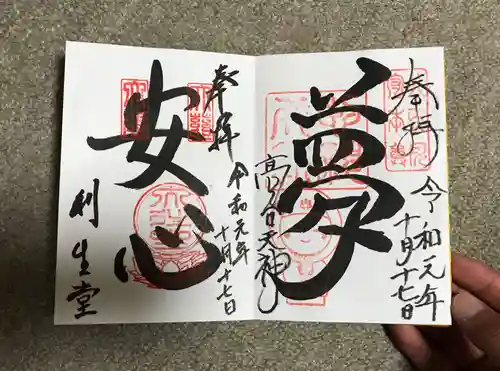 奉拝
令和元年
十月十七日
夢
高台天神
奉拝
令和元年
十月十七日
安心
利生堂